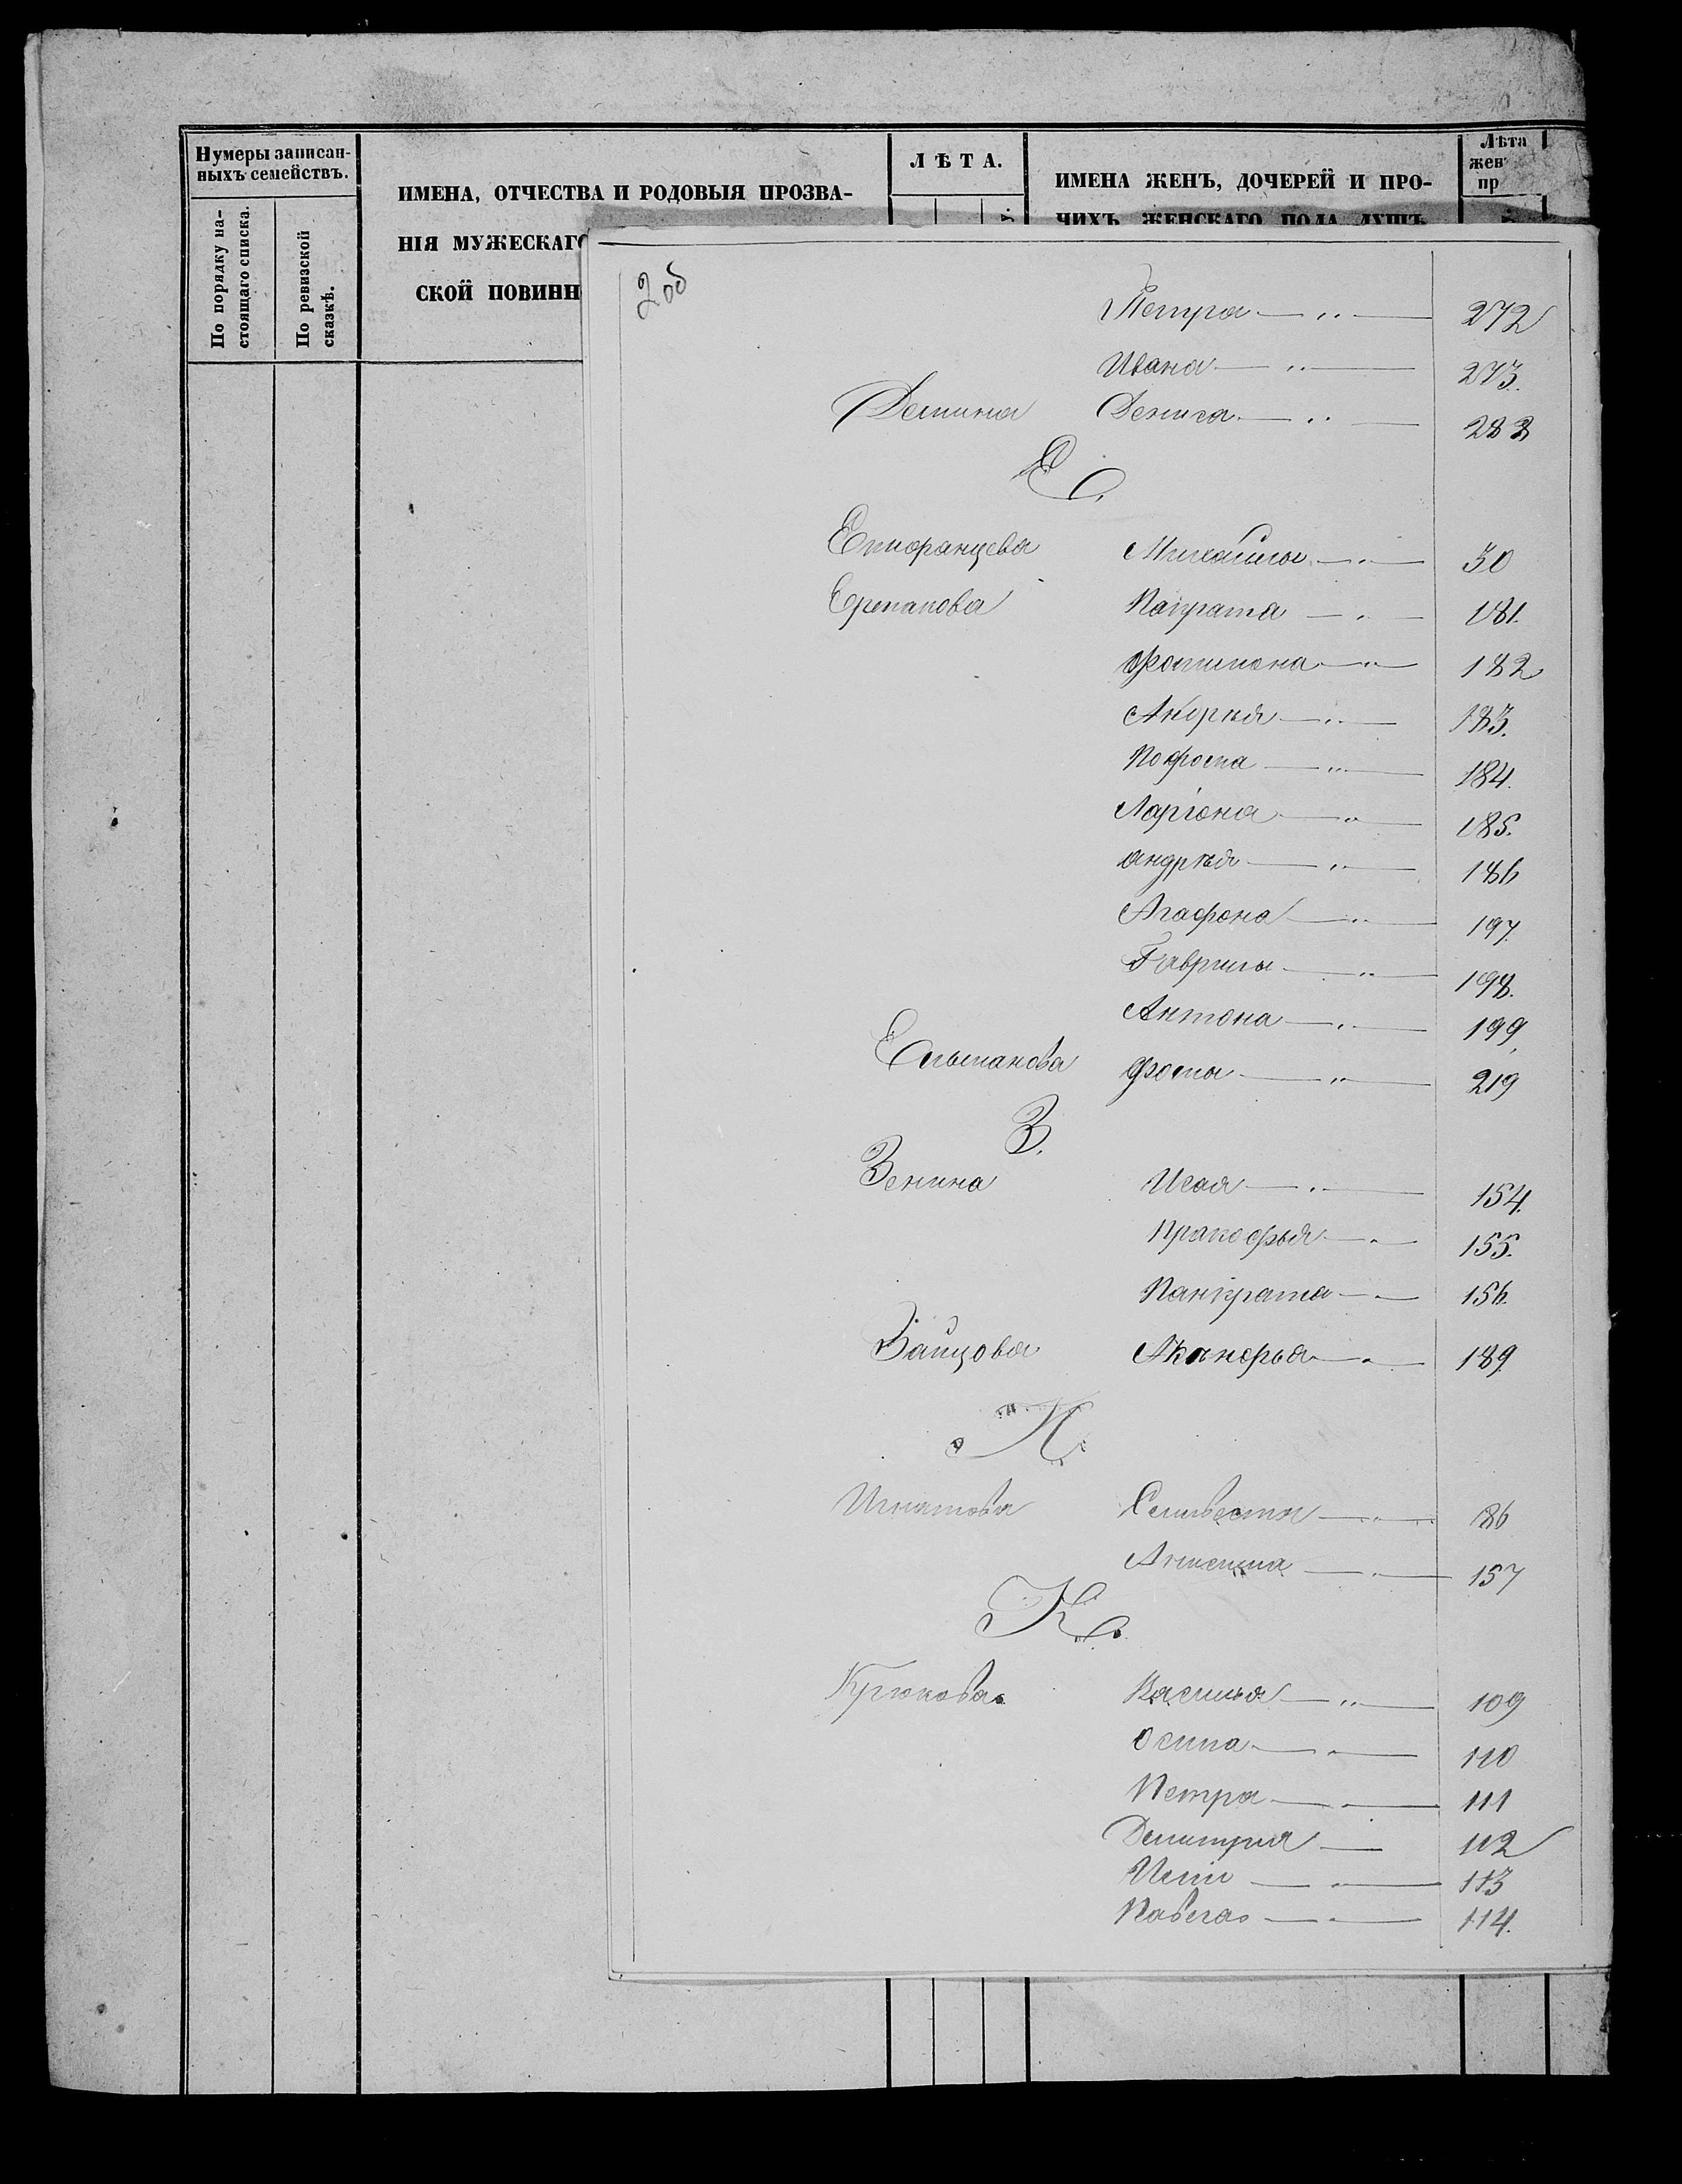 Нумеры записан-
ныхъ семействъ.
По порядку на-
стоящаго списка.
По ревизской
сказкѣ.
ИМЕНА, ОТЧЕСТВА И РОДОВЫЯ ПРОЗВА-
НІЯ МУЖЕСКАГО
СКОЙ ПОВИНН
ЛѢТА.
ИМЕНА ЖЕНЪ, ДОЧЕРЕЙ И ПРО-
ЧИХЪ ЖЕНСКАГО ПОЛА ДУШЪ
Лѣта
жен
пр
2об
Петра — " — 272
Ивана — " — 273.
Демина Дениса — " — 283
Е.
Михайлы — " — 30
Ермакова Панграта — " — 181.
Филимона — " — 182
Андрѣя — " — 183.
184.
Ларіона — " — 185.
Андрѣя — " — 186
Агафона — " — 197.
Гаврилы — " — 198.
Антона — " — 199.
Ельманова Фомы — " — 219
З.
Зенина Исая — " — 154.
Пракофья — " — 155.
Панкрата — " — 156.
Зайцова — " — 189.
И.
Игнатова Селивестра — " — 86
157
К.
Крюкова Василья — " — 109
Осипа — " — 110
Петра — " — 111
Дмитрия — 112
113
Павела — " — 114.